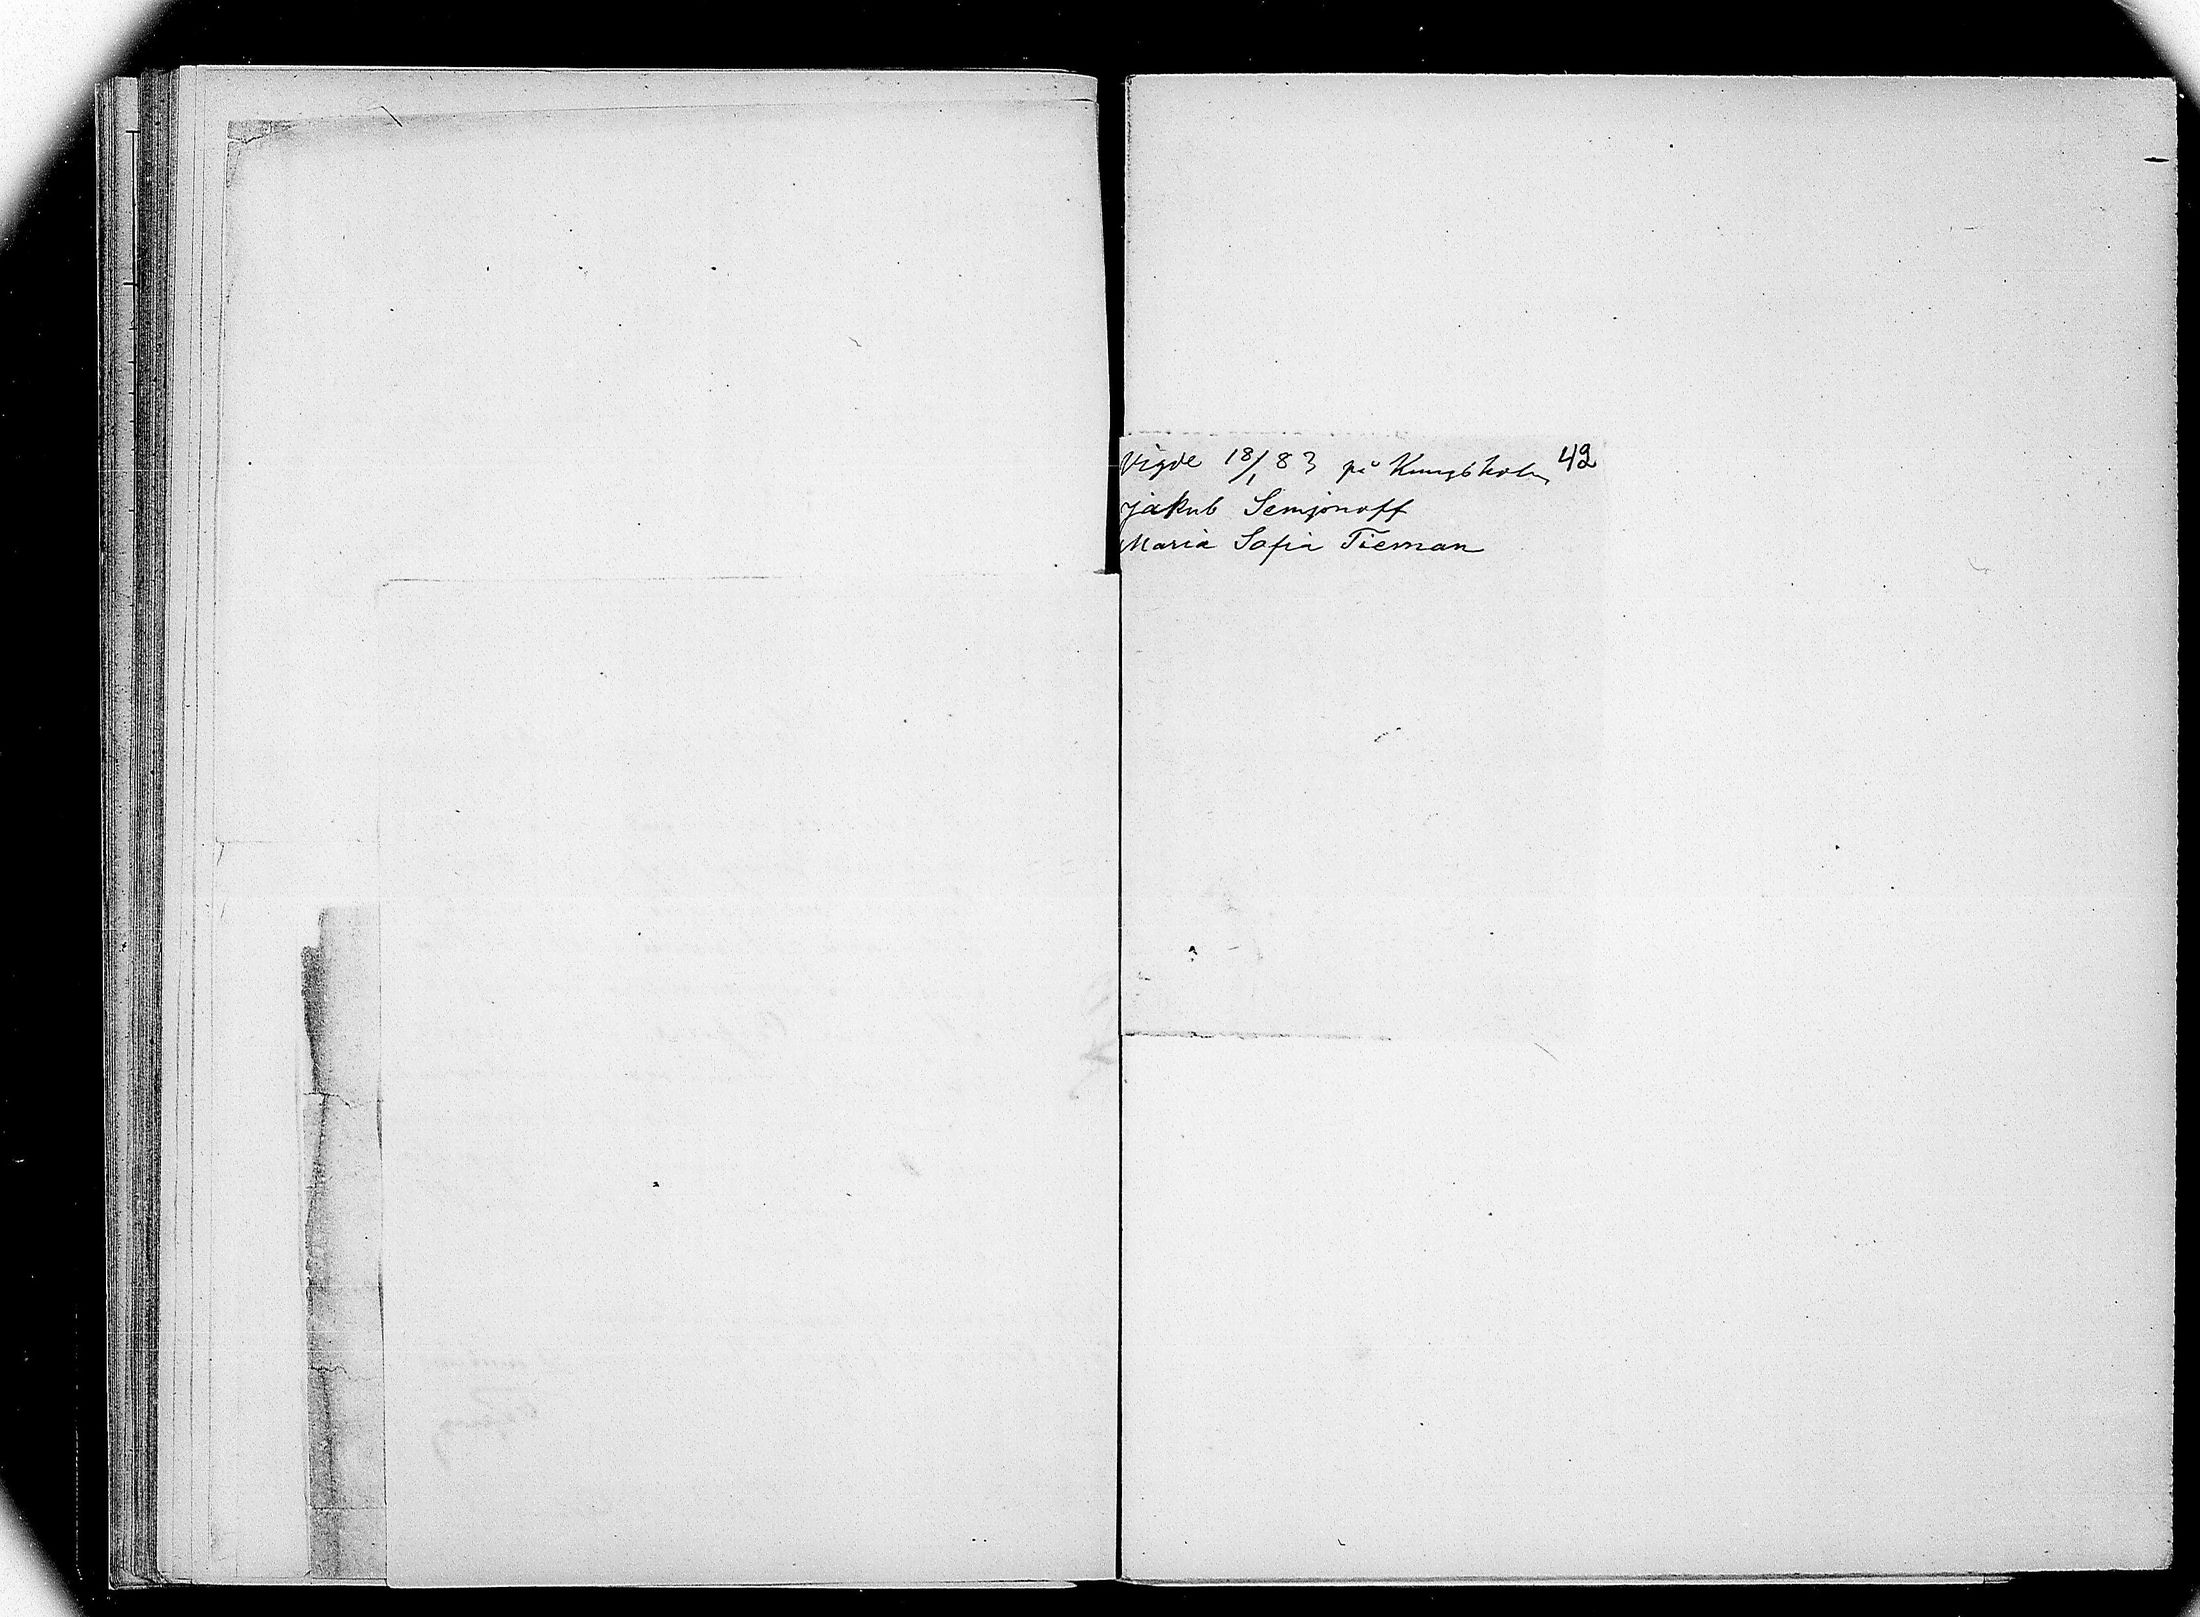 Vigde 18/1 83 på Kungsholm 42
Jakub Semjonoff
Maria Sofia Tieman